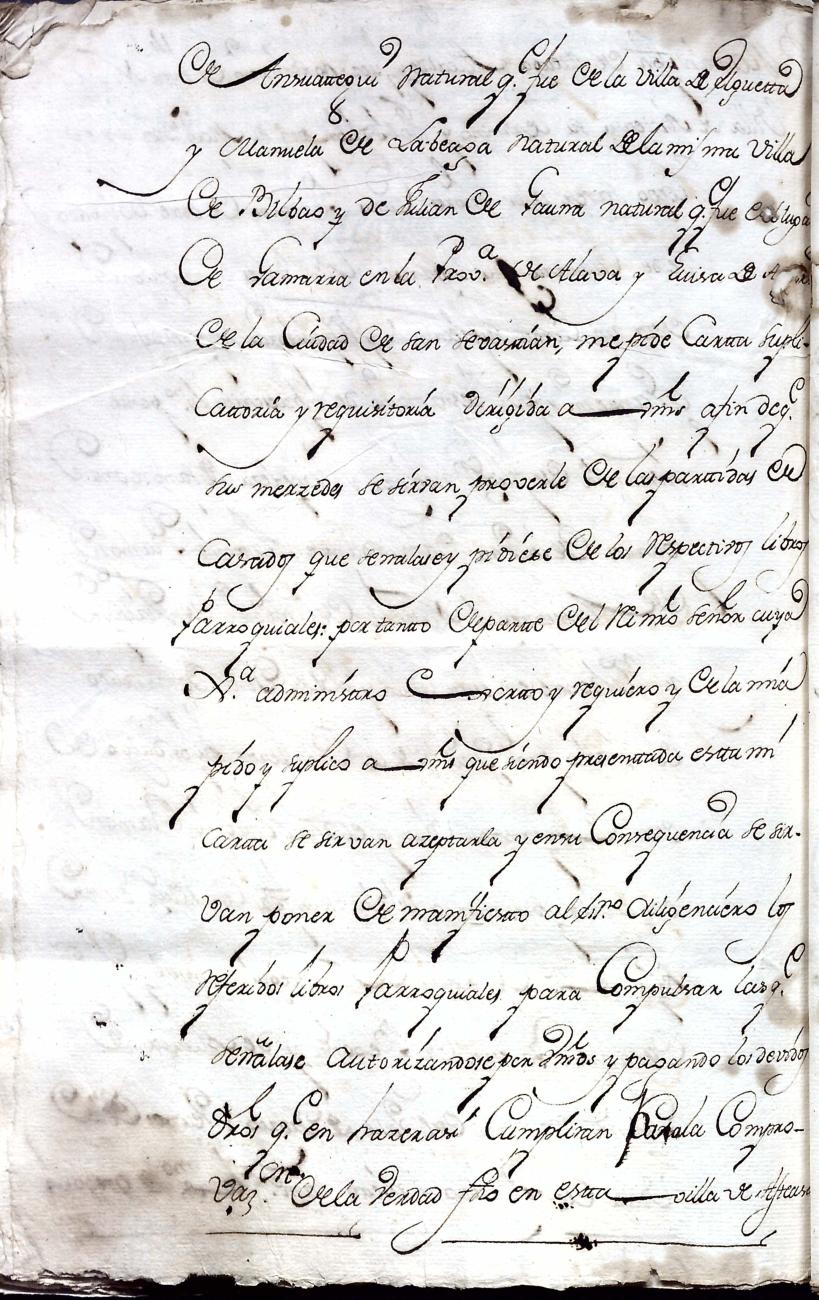 de Ansuattegui Natural q.e fue de la Villa de Elguetta
8.
y Manuela de Labeaga Natural de la misma Villa
de Bilbao y de Julian de Gauna natural q.e fue del lugar
de Gamarra en la Prov.a de Alava y Luisa de
de la Ciudad de san sevastian, me pide Cartta supli-
cattoria y requisitoria dirigida a Vmds afin de q.e
sus merzedes se sirvan proverle de las parttidas de
Casados que señalase y pidiese de los Respectivos libros
Parroquiales: por tantto de partte del Nimro señor cuya
R.a administro exorto y requiero y de la mia
pido y suplico a Vmds que siendo presenttada estta mi
cartta se sirvan azeptarla y en su Consequencia se sir-
van poner de manifiestto al ssno diligenciero los
referidos libros Parroquiales para Compulsar las q.e
señalase autorizandose por Vmds y pagando los devidos
dros q.e en hazer asi Cumpliran Para la Compro-
vaz.on de la verdad fho en estta villa de Asteasu